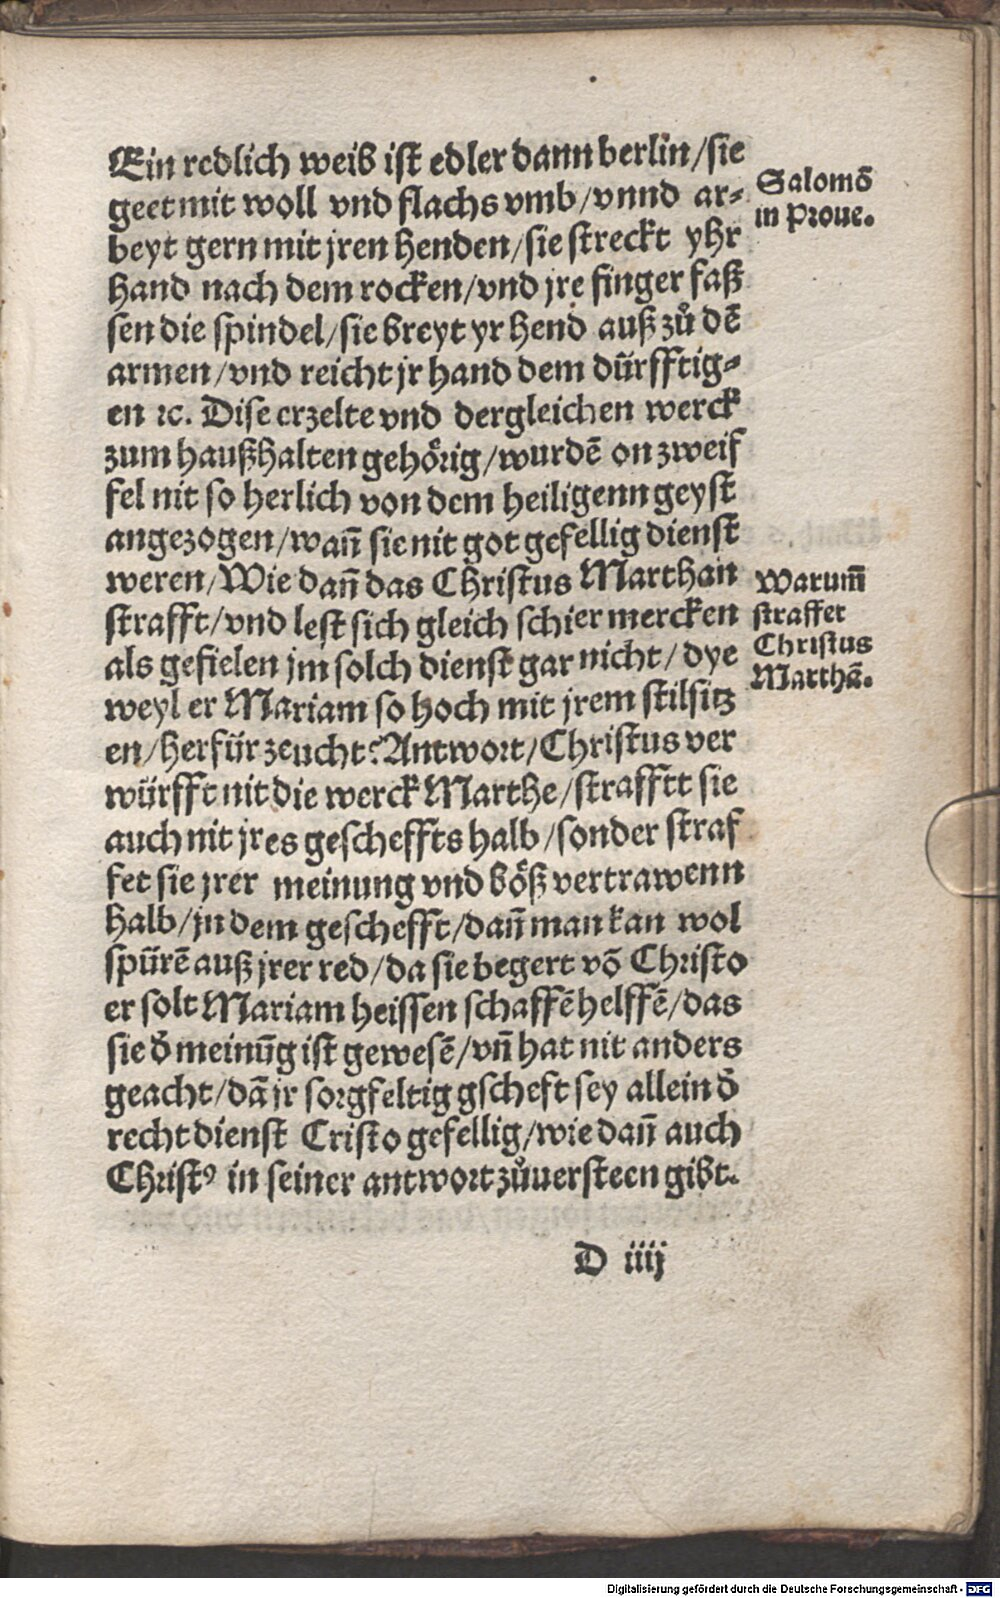 Ein redlich weib ist edler dann berlin/sie
geet mit woll vnd flachs vmb/vnnd ar⸗
beyt gern mit jren henden/sie streckt yhr
hand nach dem rocken/vnd jre finger faß
sen die spindel/sie breyt yr hend auß zů dē
armen/vnd reicht jr hand dem dürfftig⸗
en ⁊c. Dise erzelte vnd dergleichen werck
zum haußhalten gehörig/wurdē on zweif
fel nit so herlich von dem heiligenn geyst
angezogen/wañ sie nit got gefellig dienst
weren/Wie dañ das Christus Marthan
strafft/vnd lest sich gleich schier mercken
als gefielen jm solch dienst gar nicht/dye
weyl er Mariam so hoch mit jrem stilsitz
en/herfür zeucht? Antwort/Christus ver
würfft nit die werck Marthe/strafftt sie
auch nit jres gescheffts halb/sonder straf
fet sie jrer meinung vnd böß vertrawenn
halb/jn dem geschefft/dañ man kan wol
spürē auß jrer red/da sie begert vō Christo
er solt Mariam heissen schaffē helffē/das
sie d̄ meinūg ist gewesē/vñ hat nit anders
geacht/dā jr sorgfeltig gscheft sey allein d̄
recht dienst Cristo gefellig/wie dañ auch
Christꝰ in seiner antwort zůuersteen gibt.
D iiij
Salomō
in Proue.
Warum̄
straffet
Christus
Marthā.
Digitalisierung gefördert durch die Deutsche Forschungsgemeinschaft - DFG